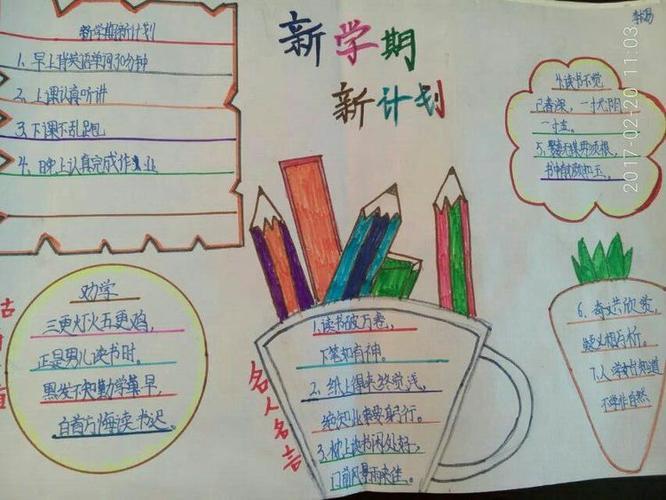 新学期
新计划
李易
2017-02-20 11:03
新学期新计划
1、早上背英语单词30分钟
2、上课认真听讲
3、下课不乱跑
4、晚上认真完成作业
劝学
三更灯火五更鸡,
正是男儿读书时。
黑发不知勤学早,
白首方悔读书迟。
名人名言
1、读书破万卷,
下笔如有神。
2、纸上得来终觉浅,
绝知此事要躬行。
3、枕上读书闲处好,
门前风景雨来佳。
4、读书不觉
已春深,一寸光阴
一寸金。
5、
书中自有颜如玉。
6、奇文共欣赏,
疑义相与析。
7、人学始知道
不学非自然